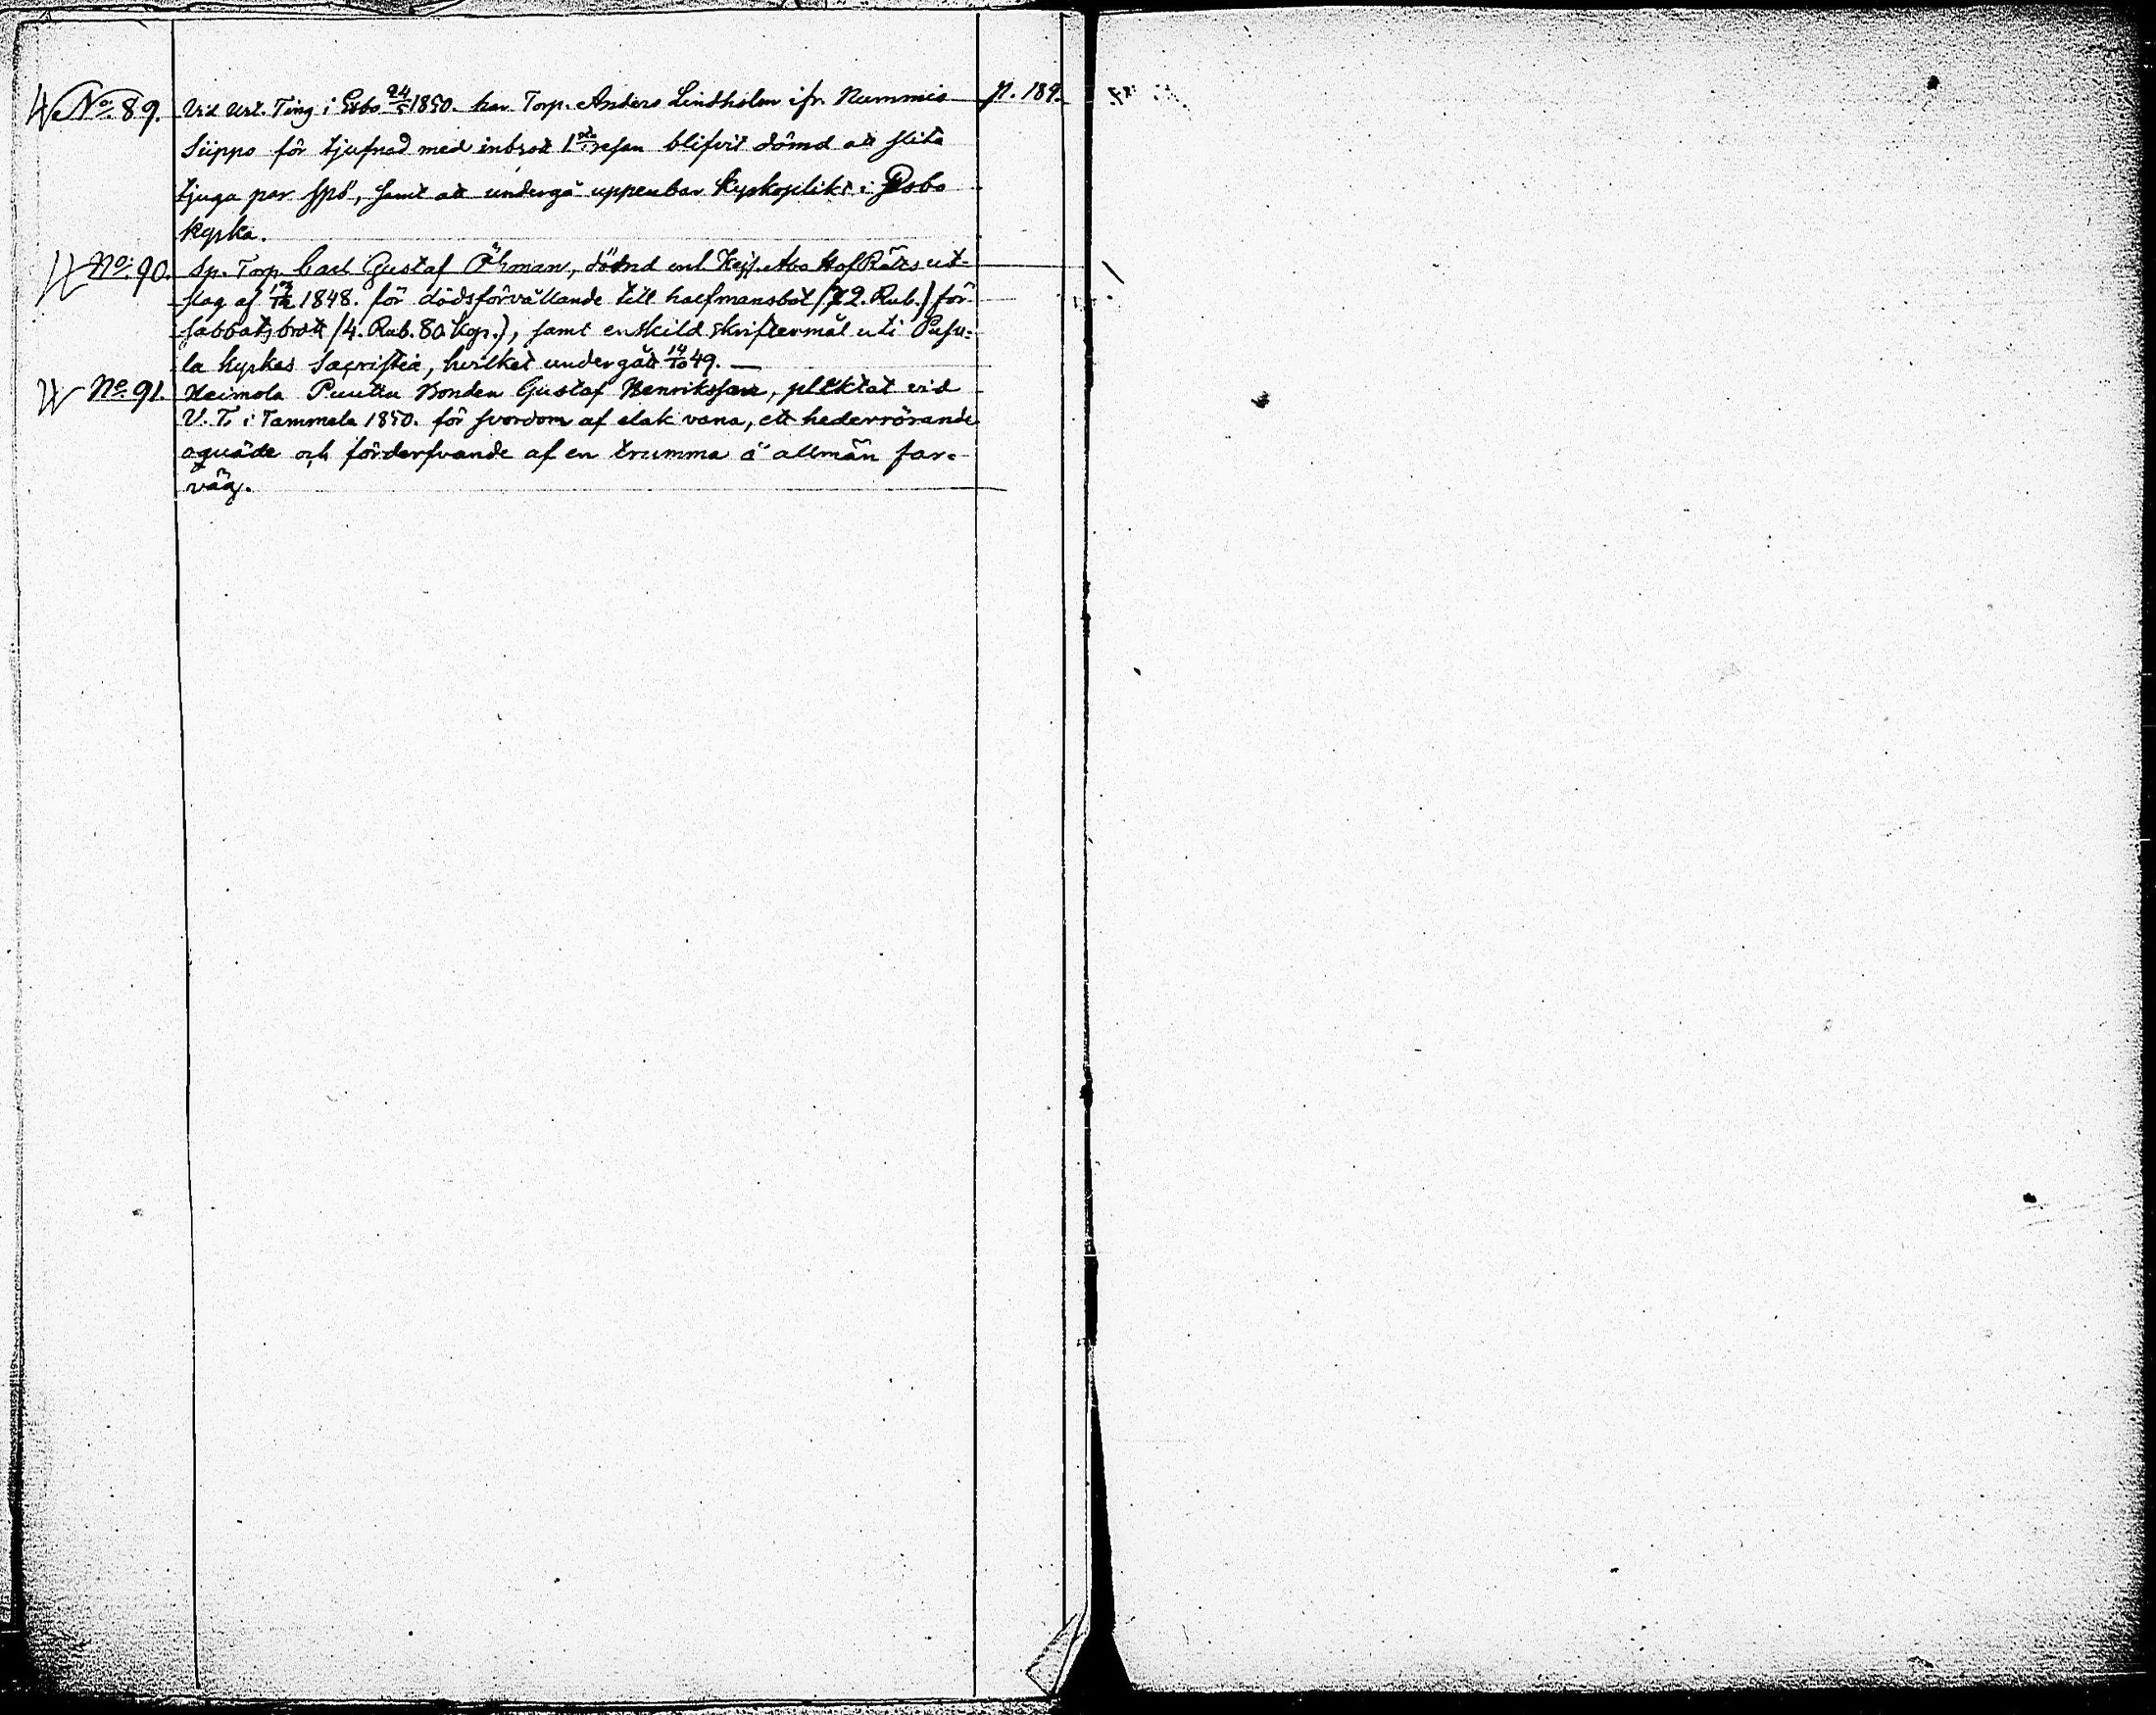 No 89. Vid Urt. Ting i Esbo 24/5 1850. har Torp. Anders Lindholm ifr. Nummis p. 189.
Siippo för tjufnad med inbrott 1sta resan blifvit dömd att slita
tjuga par spö, samt att undergå uppenbar kyrkoplikt i Esbo
kyrka.
No 90. Sp. Torp. Carl Gustaf Öhman, dömd enl. Kejs. Åbo HofRätts ut-
slag af 1848. för dödsförvållande till halfmansbot (72. Rub.) för
sabbatsbrott (4. Rub. 80 kop.), samt enskild skriftermål uti Pusu=
la kyrkas Sacristia, hvilket undergått 14/10 49. —
No 91. Haimola Puuttu Bonden Gustaf Henriksson, pliktat vid
V. T. i Tammela 1850. för svordom af elak vana, ett hederrörande
oquäde och förderfvande af en trumma å allmän far-
väg.